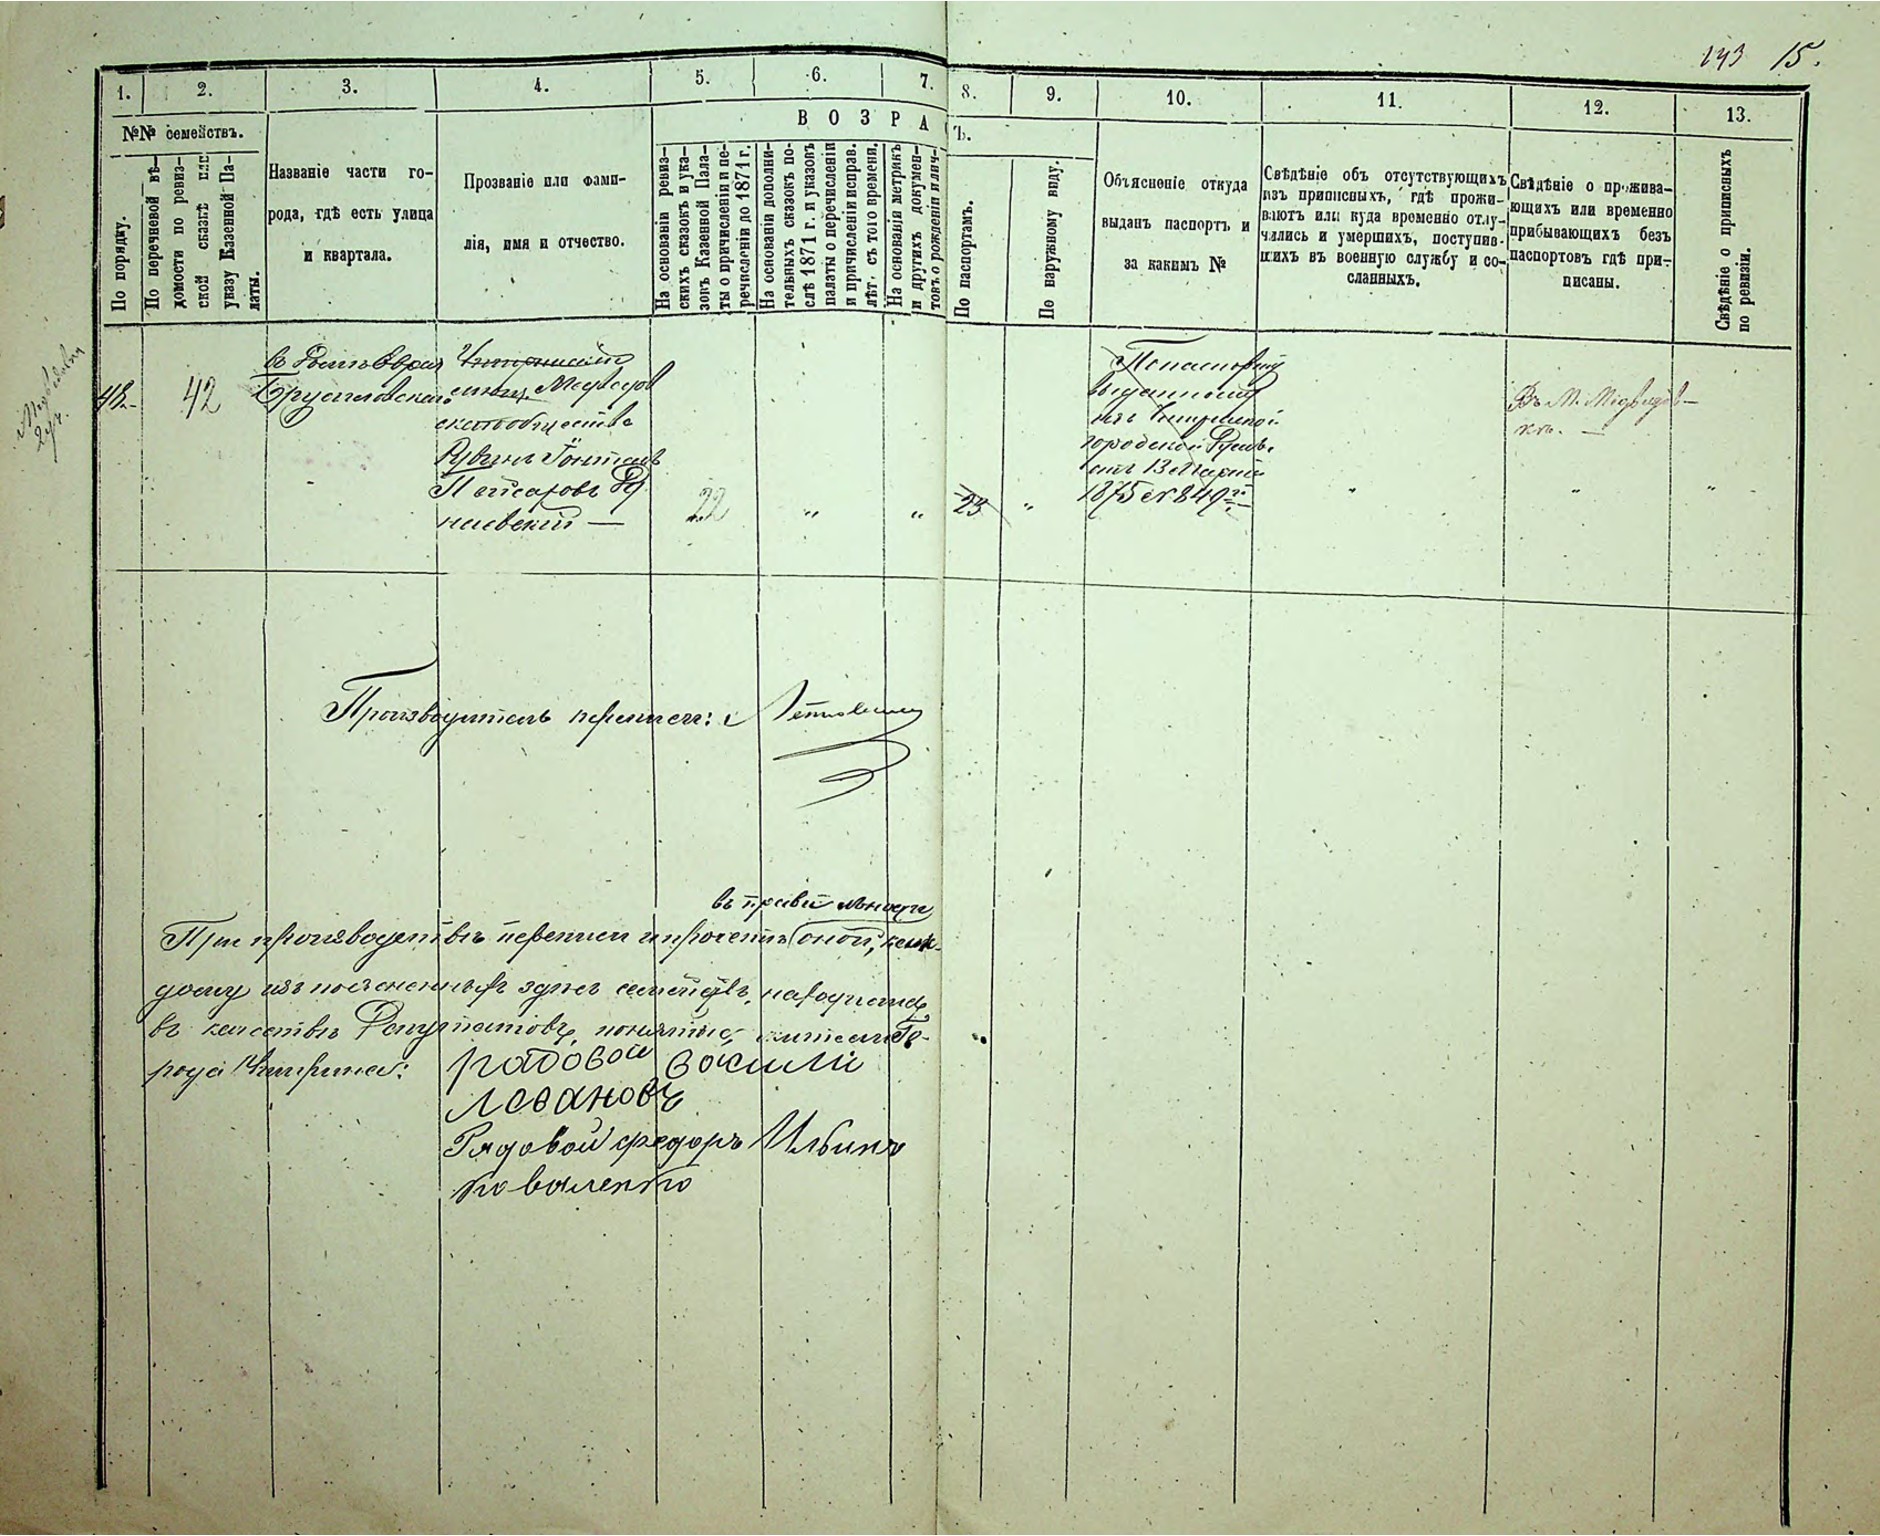 143 15.
1. 2. 3. 4. 5. 6. 7. 8. 9. 10. 11. 12. 13.
№№ семействъ.
В О З Р А
Ъ.
По порядку.
По перечневой вѣ-
домости по ревиз-
ской сказкѣ или
указу Казенной Па-
латы.
Названіе части го-
рода, гдѣ есть улица
и квартала.
Прозваніе или фами-
лія, имя и отчество.
На основаніи ревиз-
скихъ сказокъ и ука-
зовъ Казенной Пала-
ты о причисленіи и пе-
речисленіи до 1871 г.
На основаніи дополни-
тельныхъ сказокъ по-
слѣ 1871 г. и указовъ
палаты о перечисленіи
и причисленіи исправ.
лѣт. съ того времени.
На основаніи метрикъ
и другихъ докумен-
товъ о рожденіи и лич-
По паспортамъ.
По наружному виду.
Объясненіе откуда
выданъ паспортъ и
за какимъ №
Свѣдѣніе объ отсутствующихъ
изъ приписныхъ, гдѣ прожи-
ваютъ или куда временно отлу-
чились и умершихъ, поступив-
шихъ въ военную службу и со-
сланныхъ.
Свѣдѣніе о прожива-
ющихъ или временно
прибывающихъ безъ
паспортовъ гдѣ при-
писаны.
Свѣдѣніе о приписныхъ
по ревизіи.
42
в
Медведов
скаго общества
Рувинъ
Пейсаховъ
22 " " 23 "
выданному
изъ Чигиринской
городской
отъ 13 Марта
1875 № 849
" " "
Въ М. Медвѣдов-
кѣ. —
Производитель переписи:
въ правильности
При производствѣ переписи и прочетѣ оной, каж-
дому изъ поясненныхъ здѣсь семействъ, находились
въ качествѣ Депутатовъ, понятые, жители Го-
рода Чигирина:
радовой васили
Рядовой федоръ Ильинъ
Коваленко